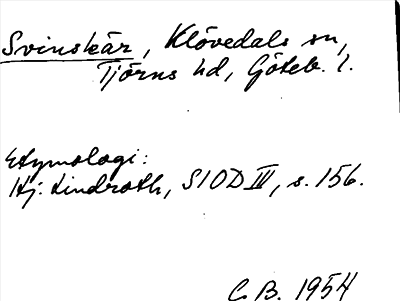 Svinskär, Klövedals sn,
Tjörns hd, Göteb. l.
Etymologi:
Hj. Lindroth, SIOD III, s. 156.
C.B. 1954